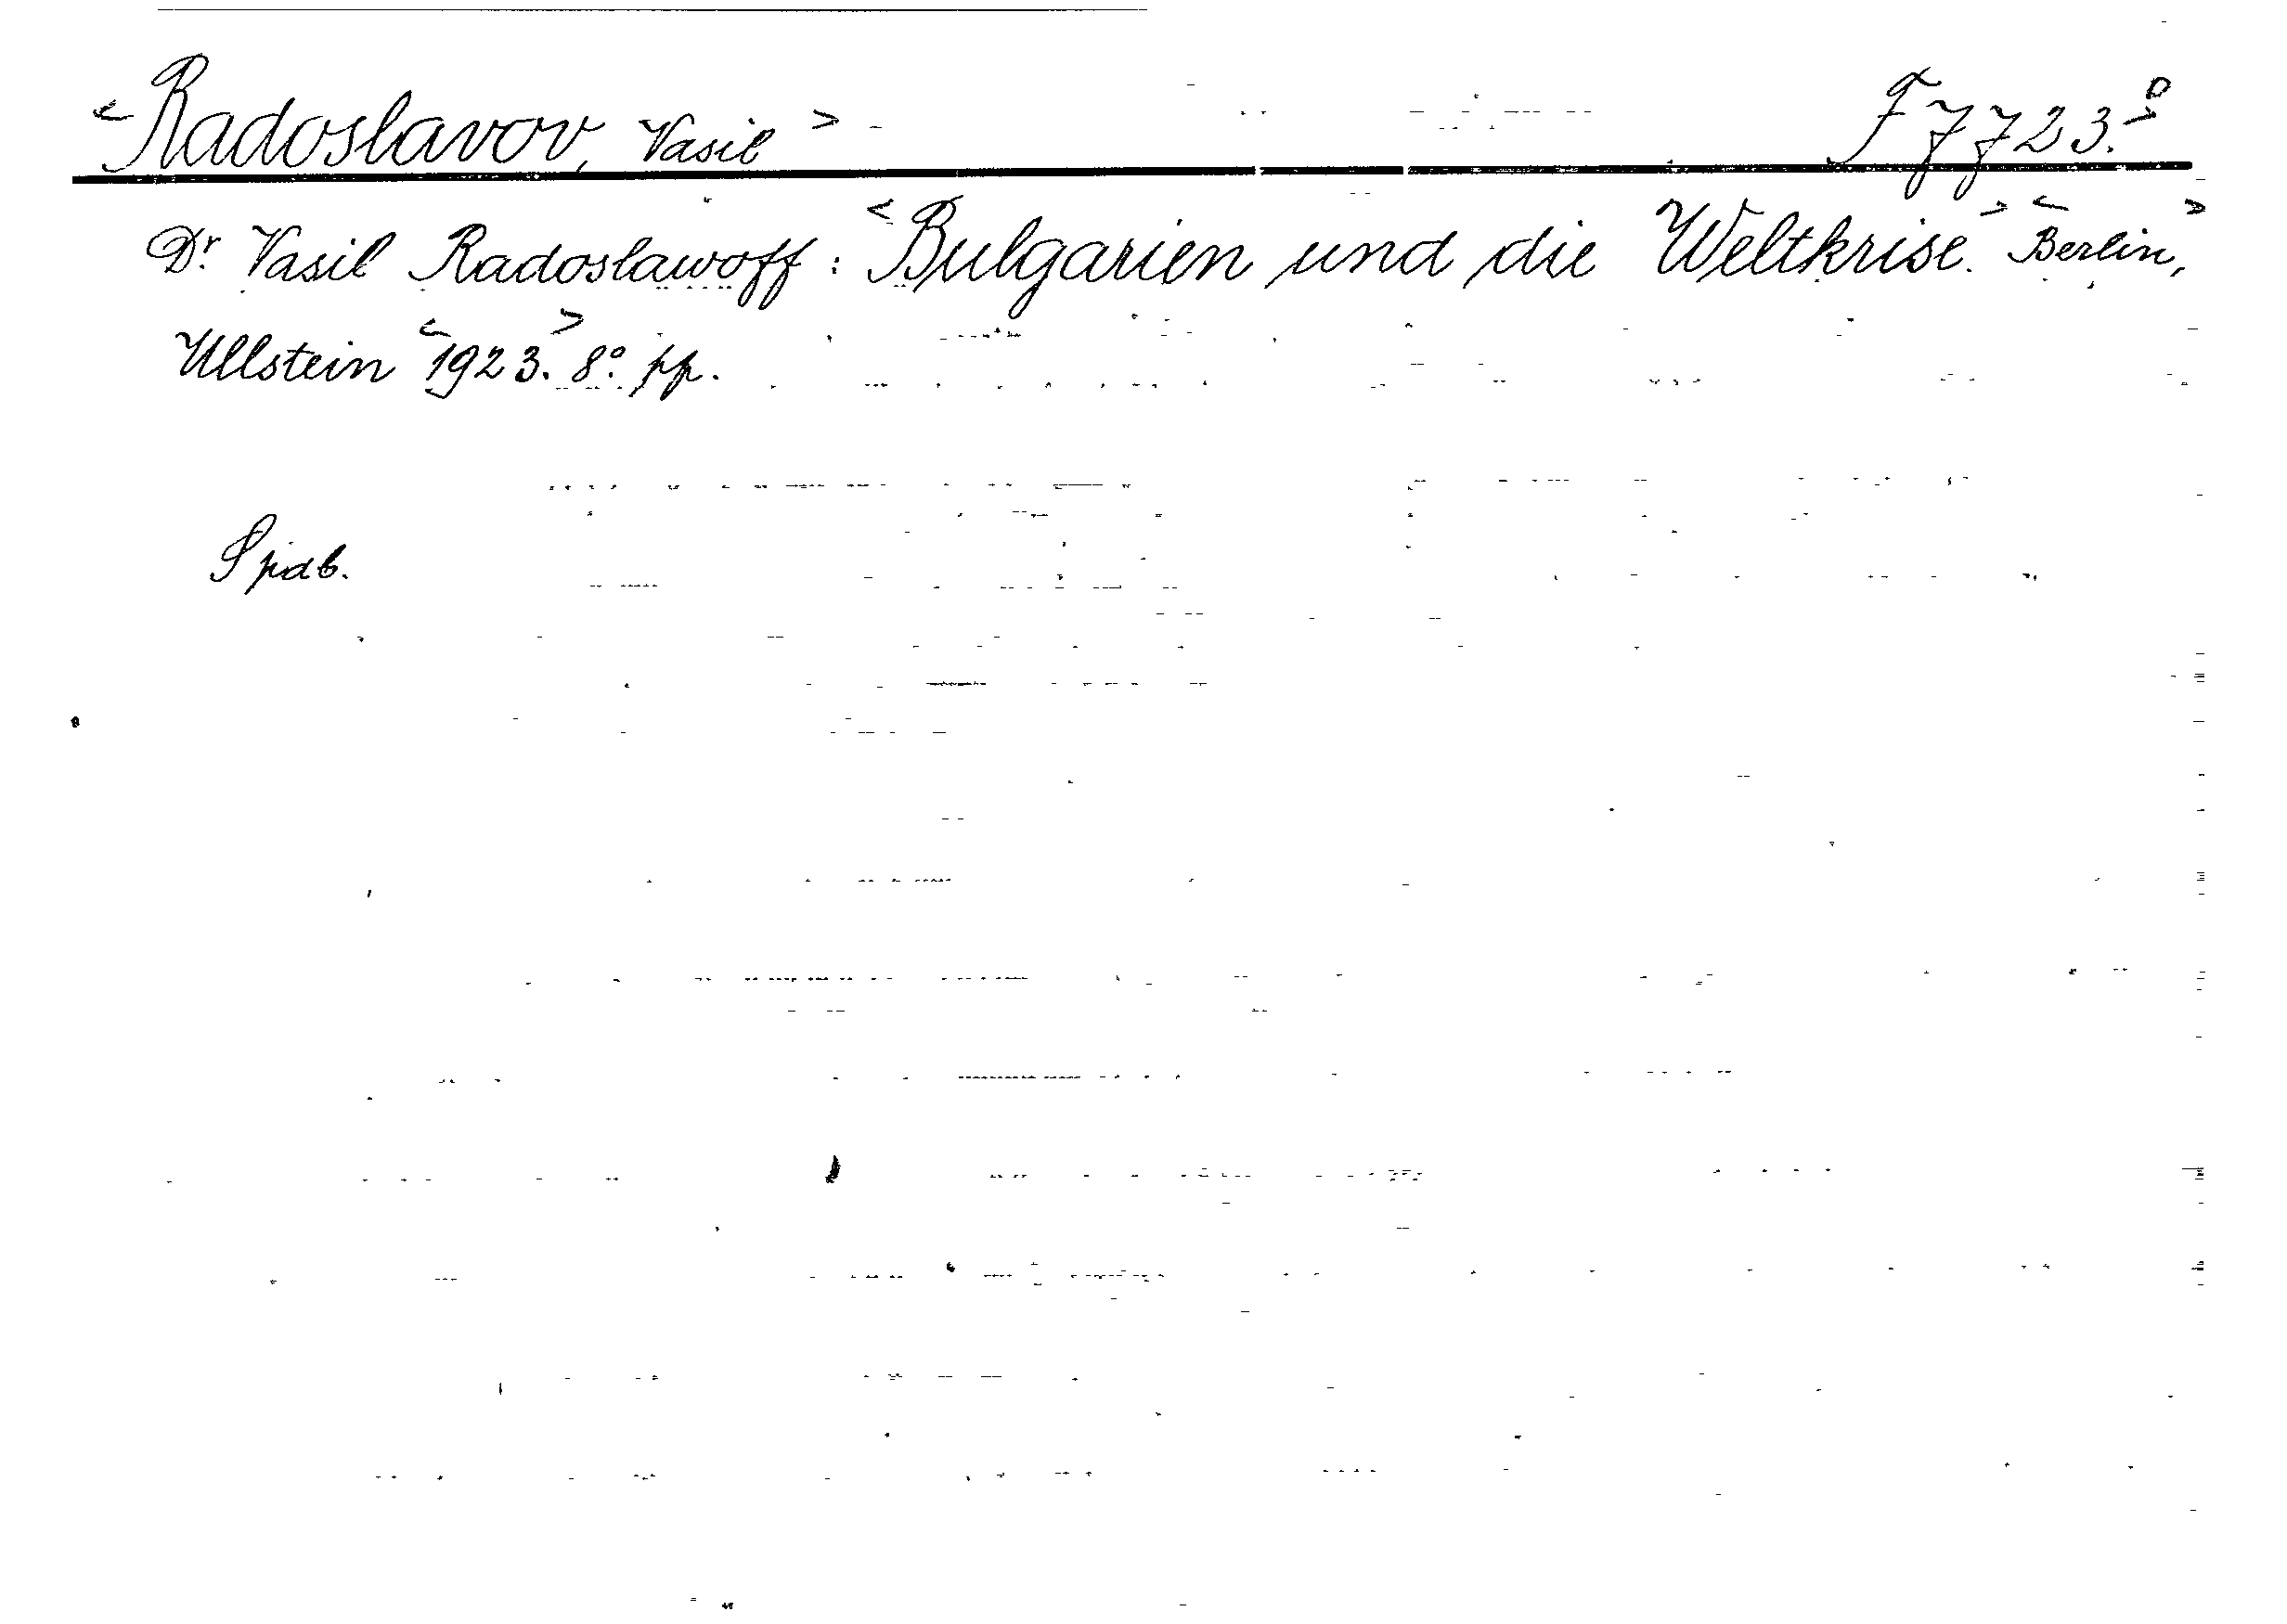 <Radoslavov, Vasil> F 7723.>
Dr. Vasil Radoslawoff: <Bulgarien und die Weltkrise.> <Berlin,>
Ullstein <1923.> 8° pp.